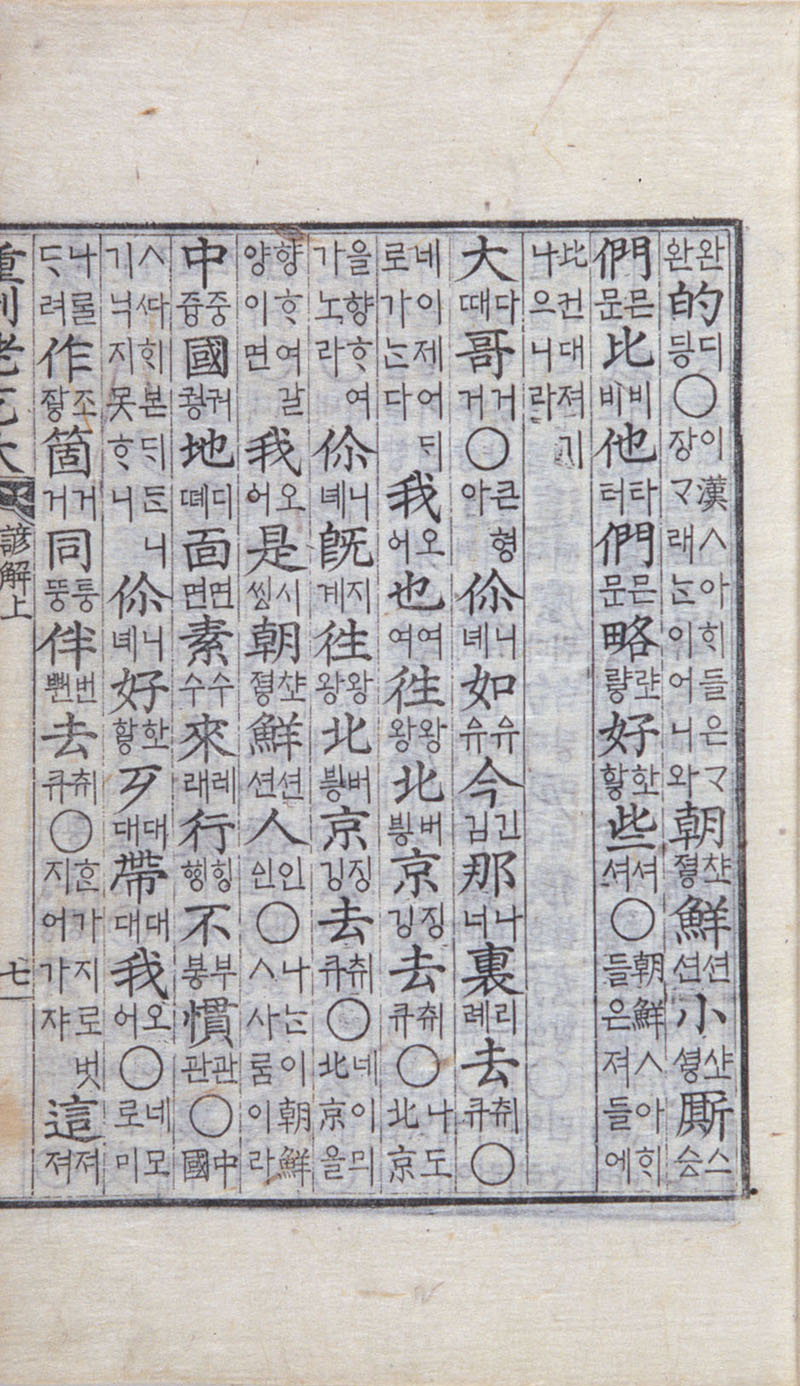 완완的딍디○이漢ㅅ아ᄒᆡ들은ᄆᆞ장ᄆᆞ래ᄂᆞᆫ이어니와朝쪙챠ᇢ鮮션션小셩샤ᇢ厮승스
們문믄比비비他터타們문믄略략랴ᇢ好핳하ᇢ些셔셔○朝鮮ㅅ아ᄒᆡ들은져들에
比컨대져기나으니라
大때다哥거거○큰형아你녜니如유유今김긴那너나裏례리去큐취○
네이제어ᄃᆡ로가ᄂᆞᆫ다我어오也여여往왕왕北븽버京깅징去큐취○나도北京
을향ᄒᆞ여가노라你녜니旣계지往왕왕北븽버京깅징去큐취○네이믜北京을
향ᄒᆞ여갈양이면我어오是씽시朝쪙챠ᇢ鮮션션人ᅀᅵᆫ인○나ᄂᆞᆫ이朝鮮ㅅ사ᄅᆞᆷ이라
中즁중國궝궈地뗴디面면면素수수來래레行ᅘᅵᆼ힝不붕부慣관관○中國
ㅅᄯᅡᄒᆡ본ᄃᆡᄃᆞᆫ니기닉지못ᄒᆞ니你녜니好핳하ᇢ歹대대帶대대我어오○네모로미
나ᄅᆞᆯᄃᆞ려作장조箇거거同뚱퉁伴뻔번去큐취○ᄒᆞᆫ가지로벗지어가쟈這져져
重刊老乞大
諺解上
七